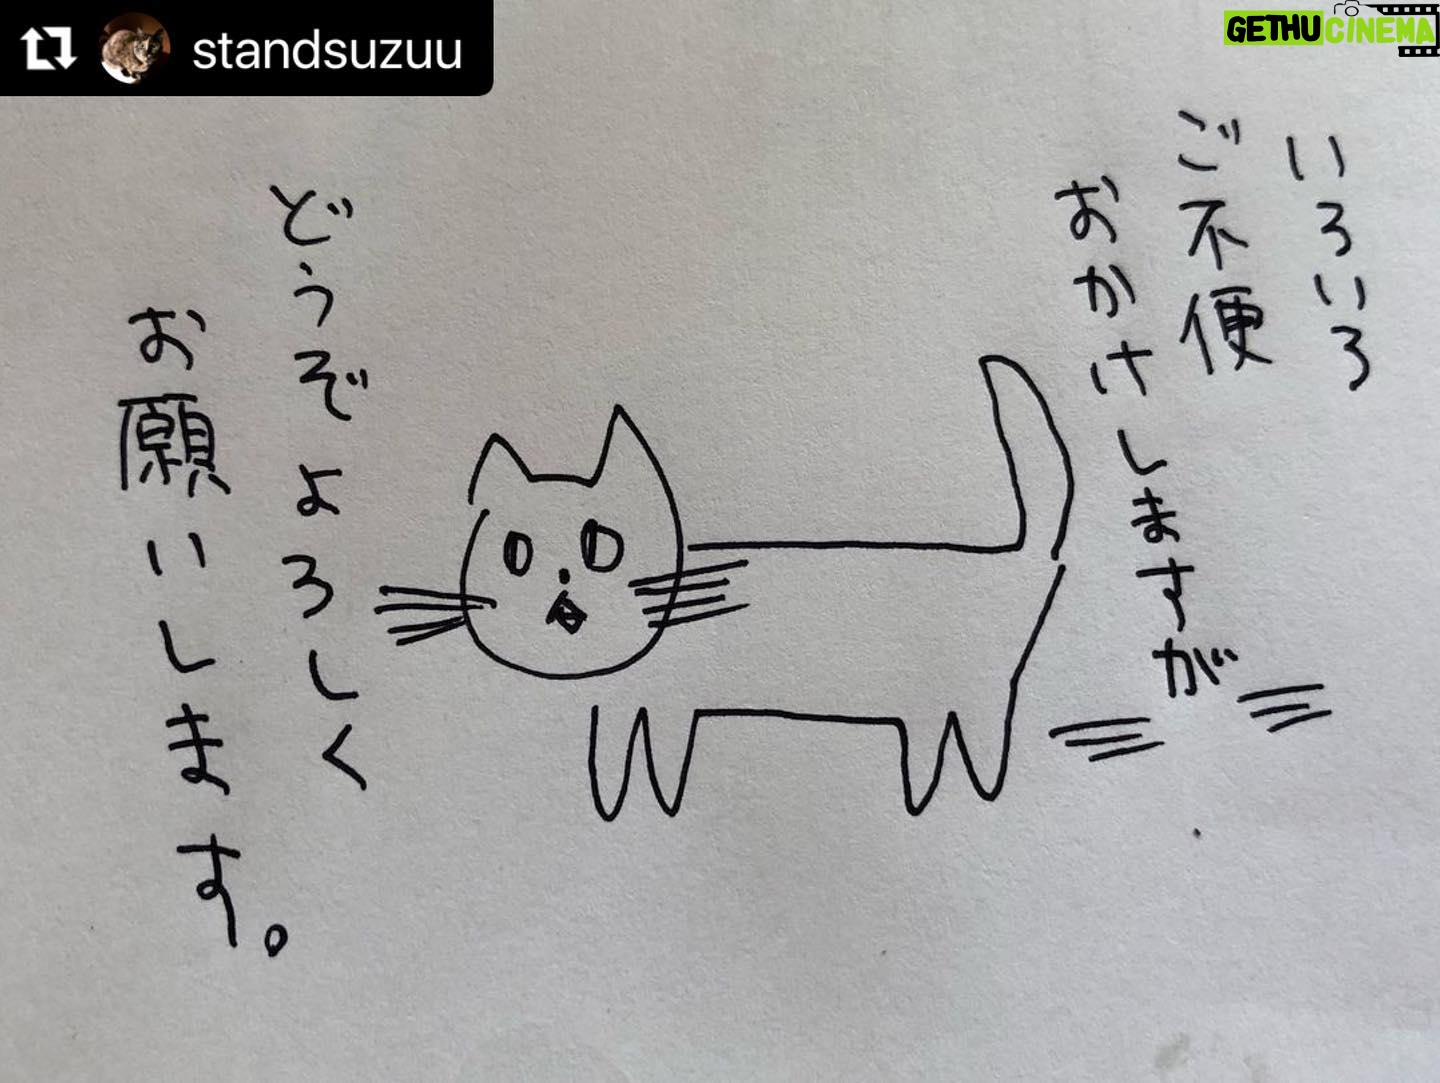 standsuzuu
GETHUCINEMA
いろいろ
ご不便
おかけしますが
どうぞよろしく
お願いします。